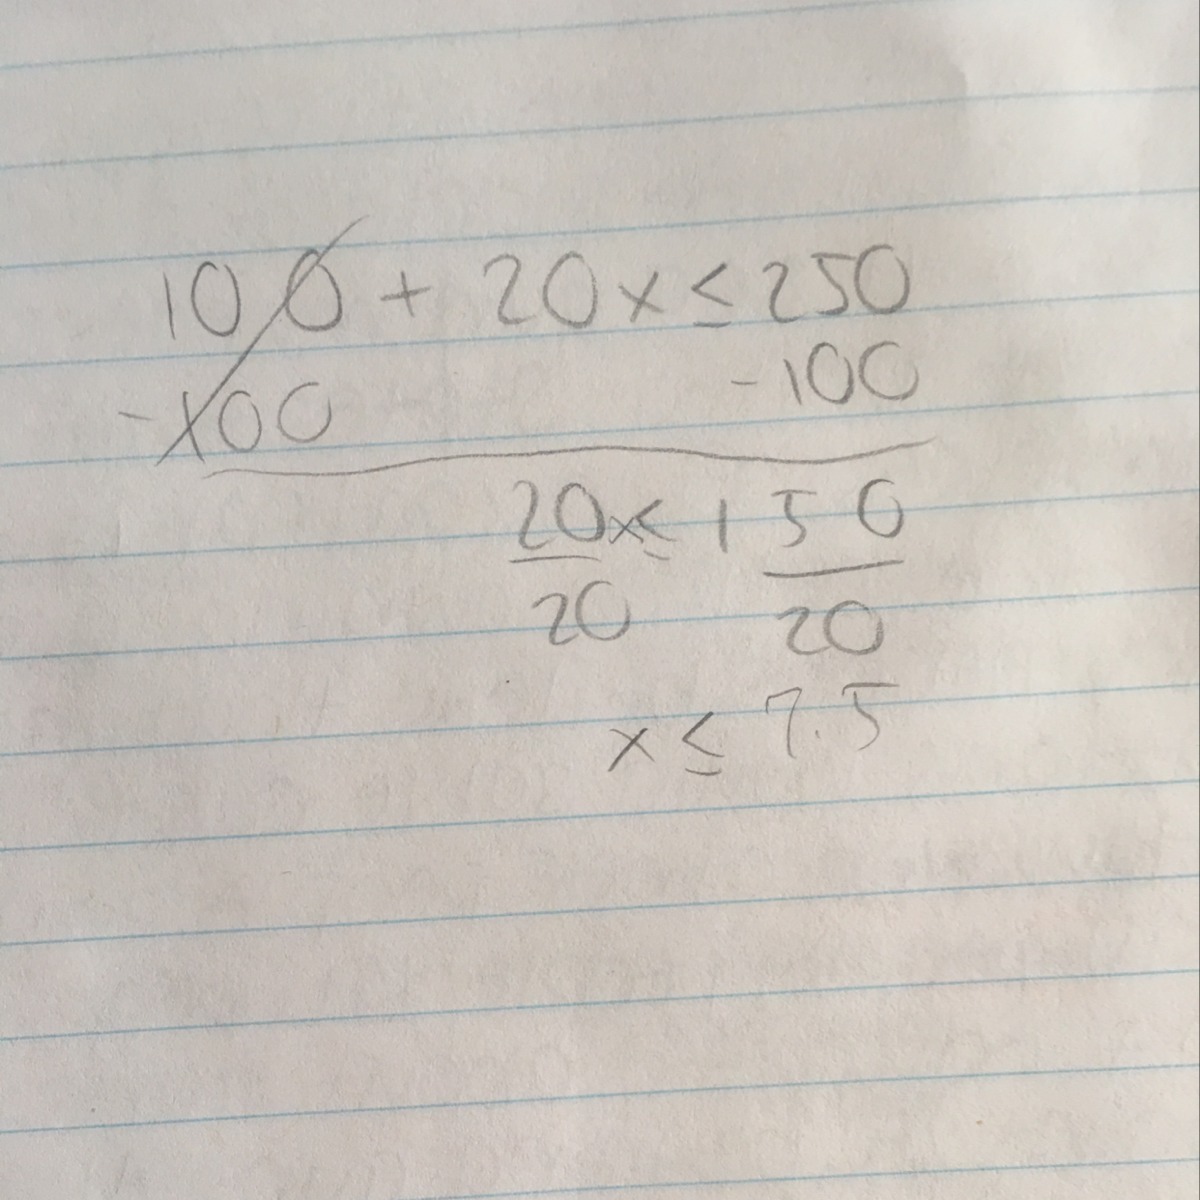 100 + 20x ≤ 250
-100 -100
20x ≤ 150
20 20
x ≤ 7.5